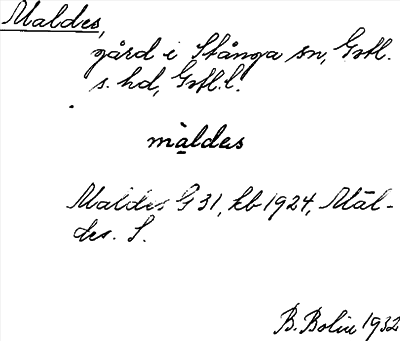 Maldes,
gård i Stånga sn, Gotl.
s. hd, Gotl. l.
màldas
Maldes G 31, kb 1924, Mäl-
des. S.
B. Bolin 1932